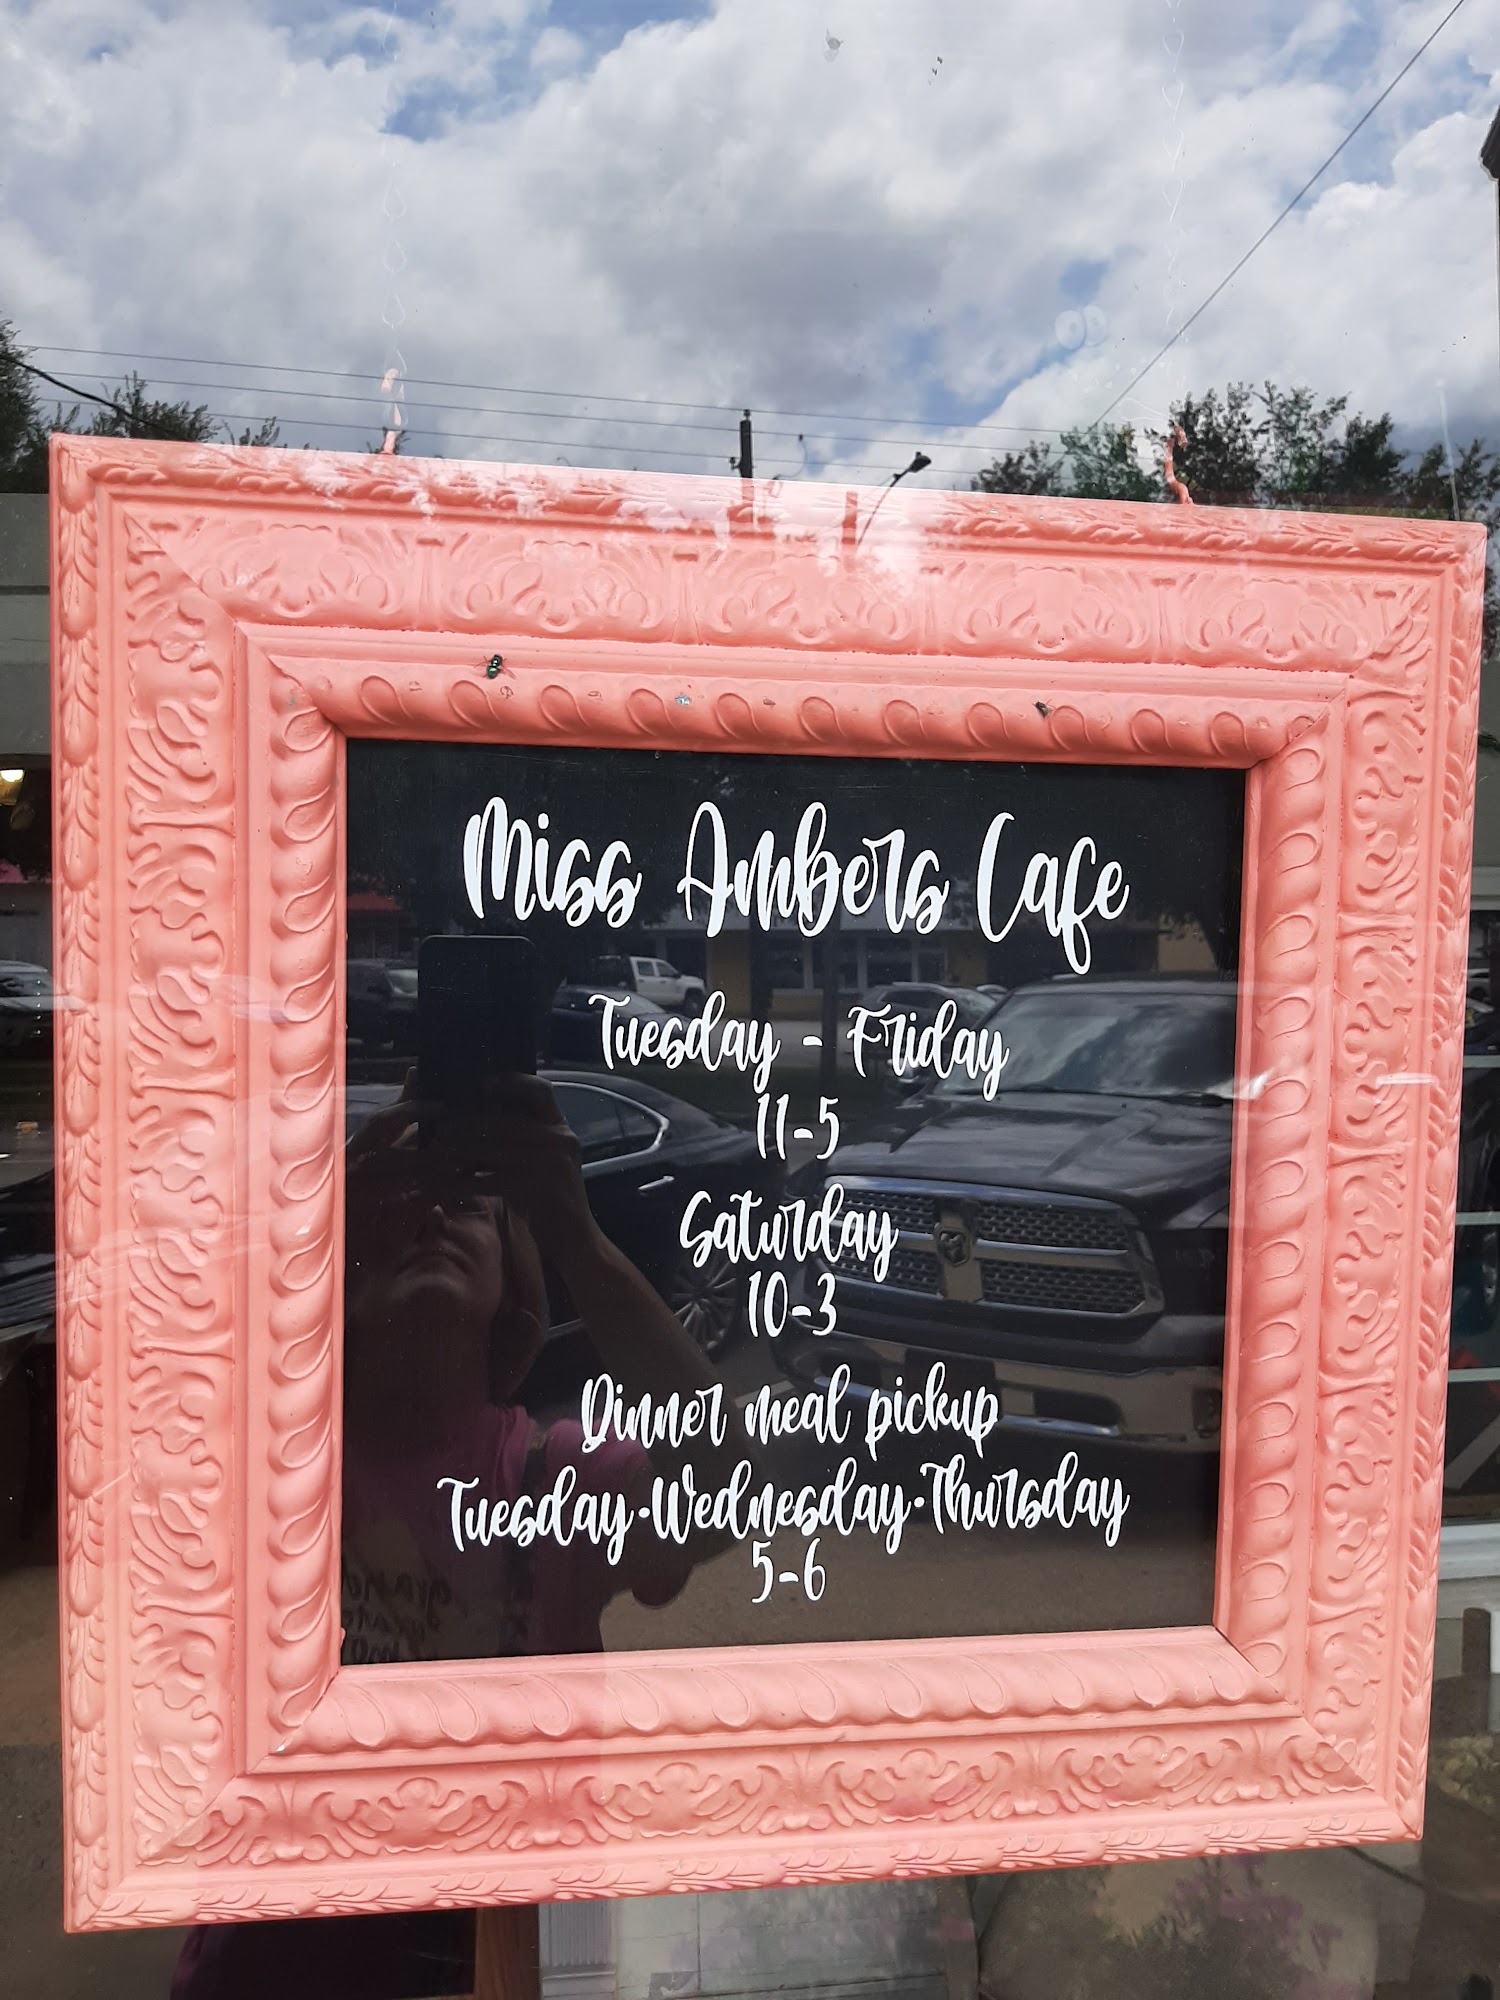 Miss Ambers Cafe
Tuesday - Friday
11-5
Saturday
10-3
Dinner meal pickup
Tuesday·Wednesday·Thursday
5-6